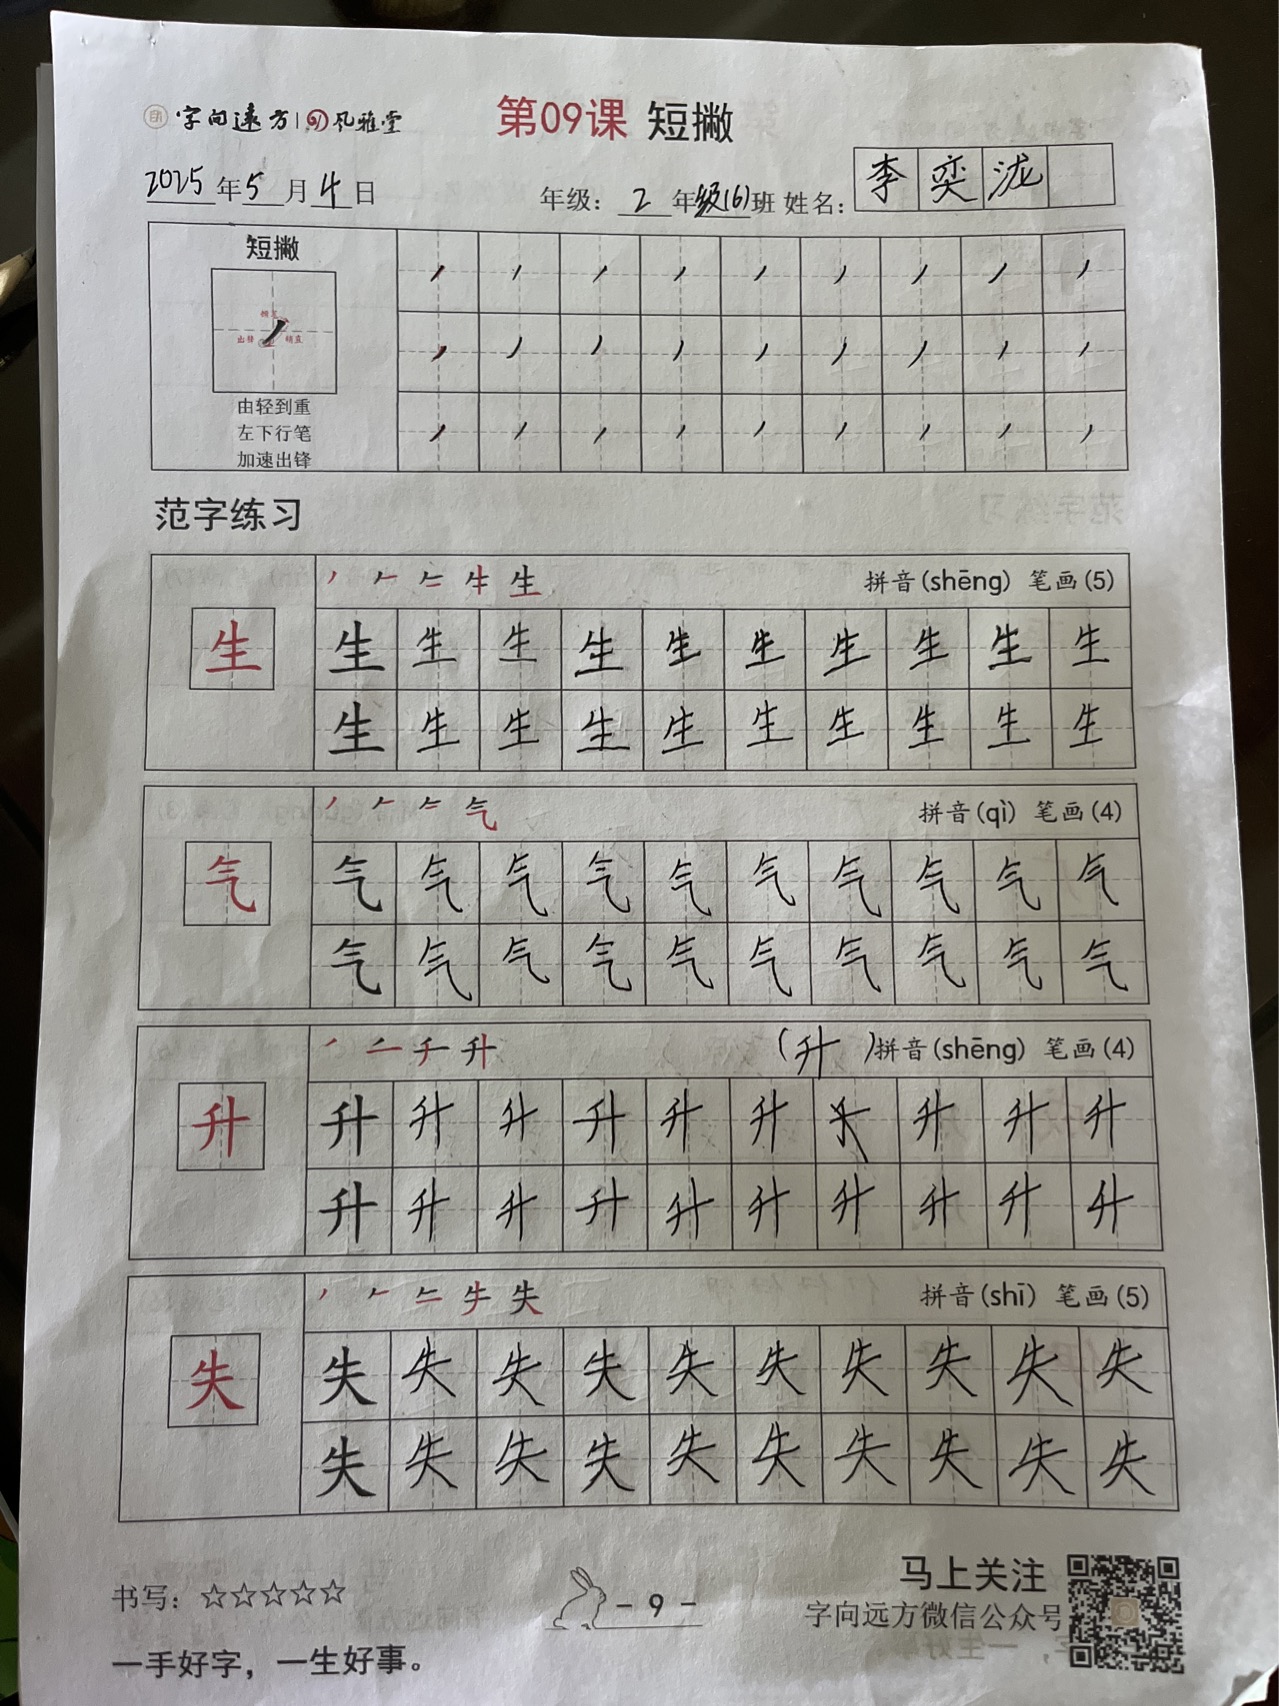 字向远方 风雅堂
第09课 短撇
2025年5月4日 年级：2年级(6)班 姓名：李奕泷
短撇
横直
出锋 稍直
由轻到重
左下行笔
加速出锋
范字练习
生 拼音(shēng) 笔画(5)
生 生 生 生 生 生 生 生 生 生 生
生 生 生 生 生 生 生 生 生 生
气 拼音(qì) 笔画(4)
气 气 气 气 气 气 气 气 气 气 气
气 气 气 气 气 气 气 气 气 气
升 (升)拼音(shēng) 笔画(4)
升 升 升 升 升 升 升 升 升 升
升 升 升 升 升 升 升 升 升 升
失 拼音(shī) 笔画(5)
失 失 失 失 失 失 失 失 失 失 失
失 失 失 失 失 失 失 失 失 失
书写：☆☆☆☆☆
- 9 -
马上关注
字向远方微信公众号
一手好字，一生好事。